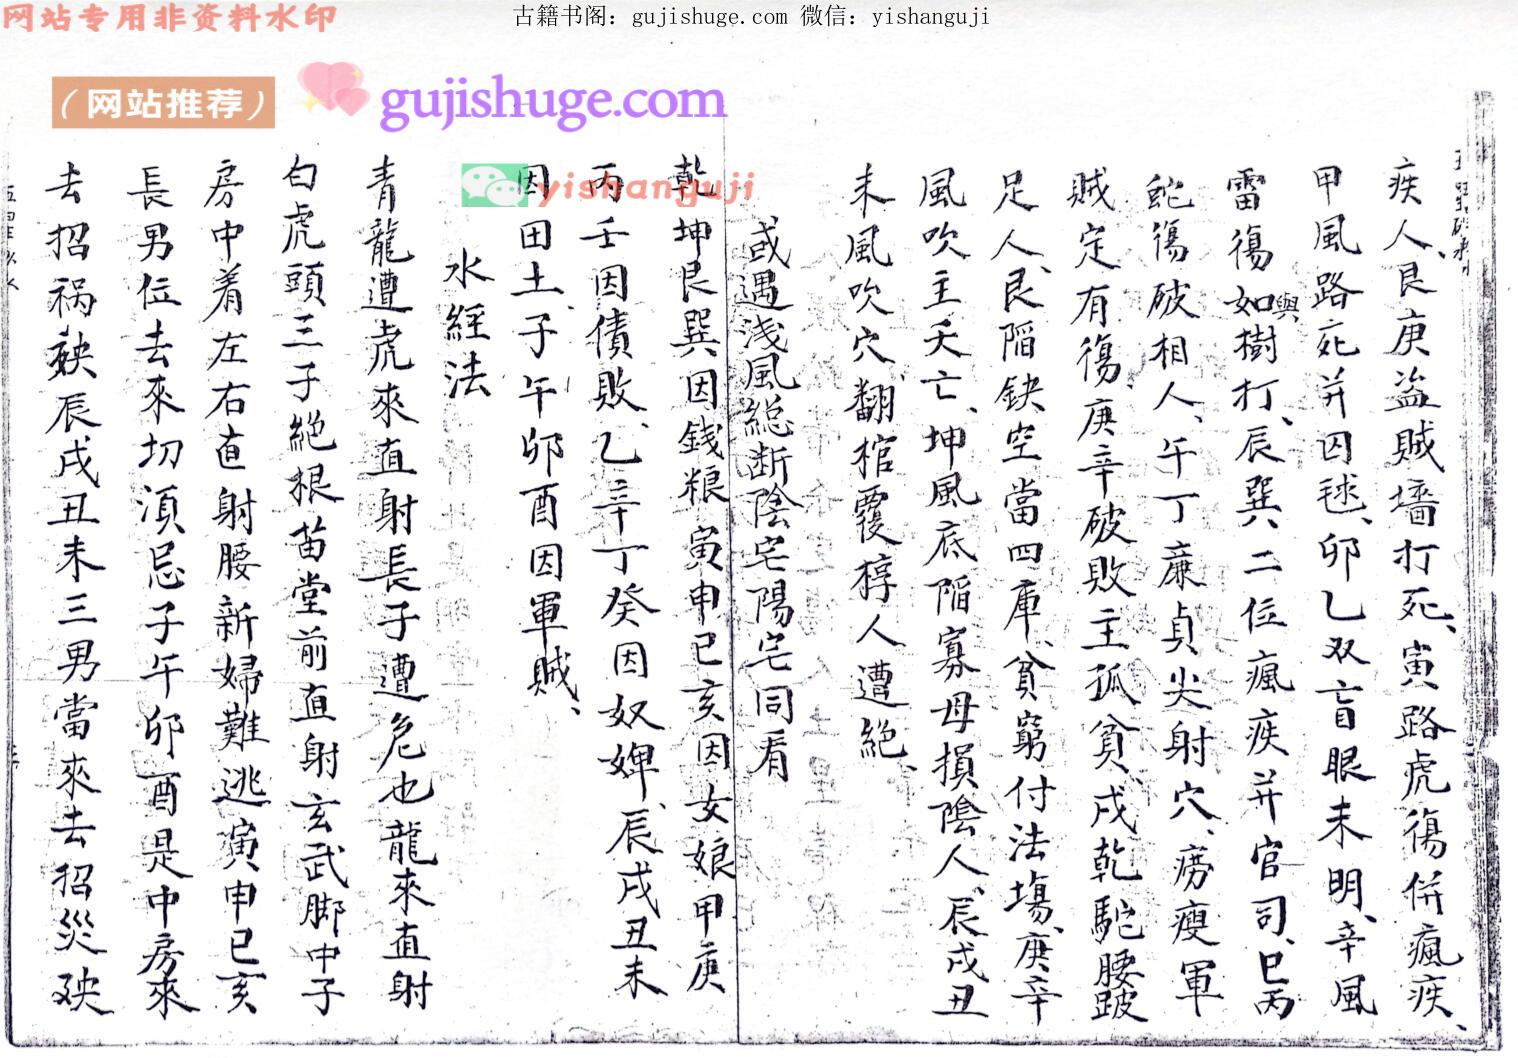 网站专用非资料水印
古籍书阁：gujishuge.com 微信：yishanguji
（网站推荐）
gujishuge.com
yishanguji
疾人、艮庚盗賊墻打死、寅路虎傷併瘋疾、
甲風路死并囚毬、卯乙双盲眼未明、辛風
雷傷如與樹打、辰巽二位瘋疾并官司、巳丙
蛇傷破相人、午丁廉貞尖射穴、癆瘦軍
賊定有傷、庚辛破敗主孤貧、戌乾駝腰跛
足人、艮陷缺空當四庫、貧窮付法塲、庚辛
風吹主夭亡、坤風底陷寡母損陰人、辰戌丑
未風吹穴翻棺覆槨人遭絕、
或遇淺風総断陰宅陽宅同看
乾坤艮巽因錢粮寅申巳亥因女娘甲庚
丙壬因債敗、乙辛丁癸因奴婢、辰戌丑未
因田土、子午卯酉因軍賊、
水經法
青龍遭虎來直射長子遭危也龍來直射
白虎頭三子絕根苗堂前直射玄武脚中子
房中着左右直射腰新婦難逃寅申巳亥
長男位去來切須忌子午卯酉是中房來
去招禍殃辰戌丑未三男當來去招災殃